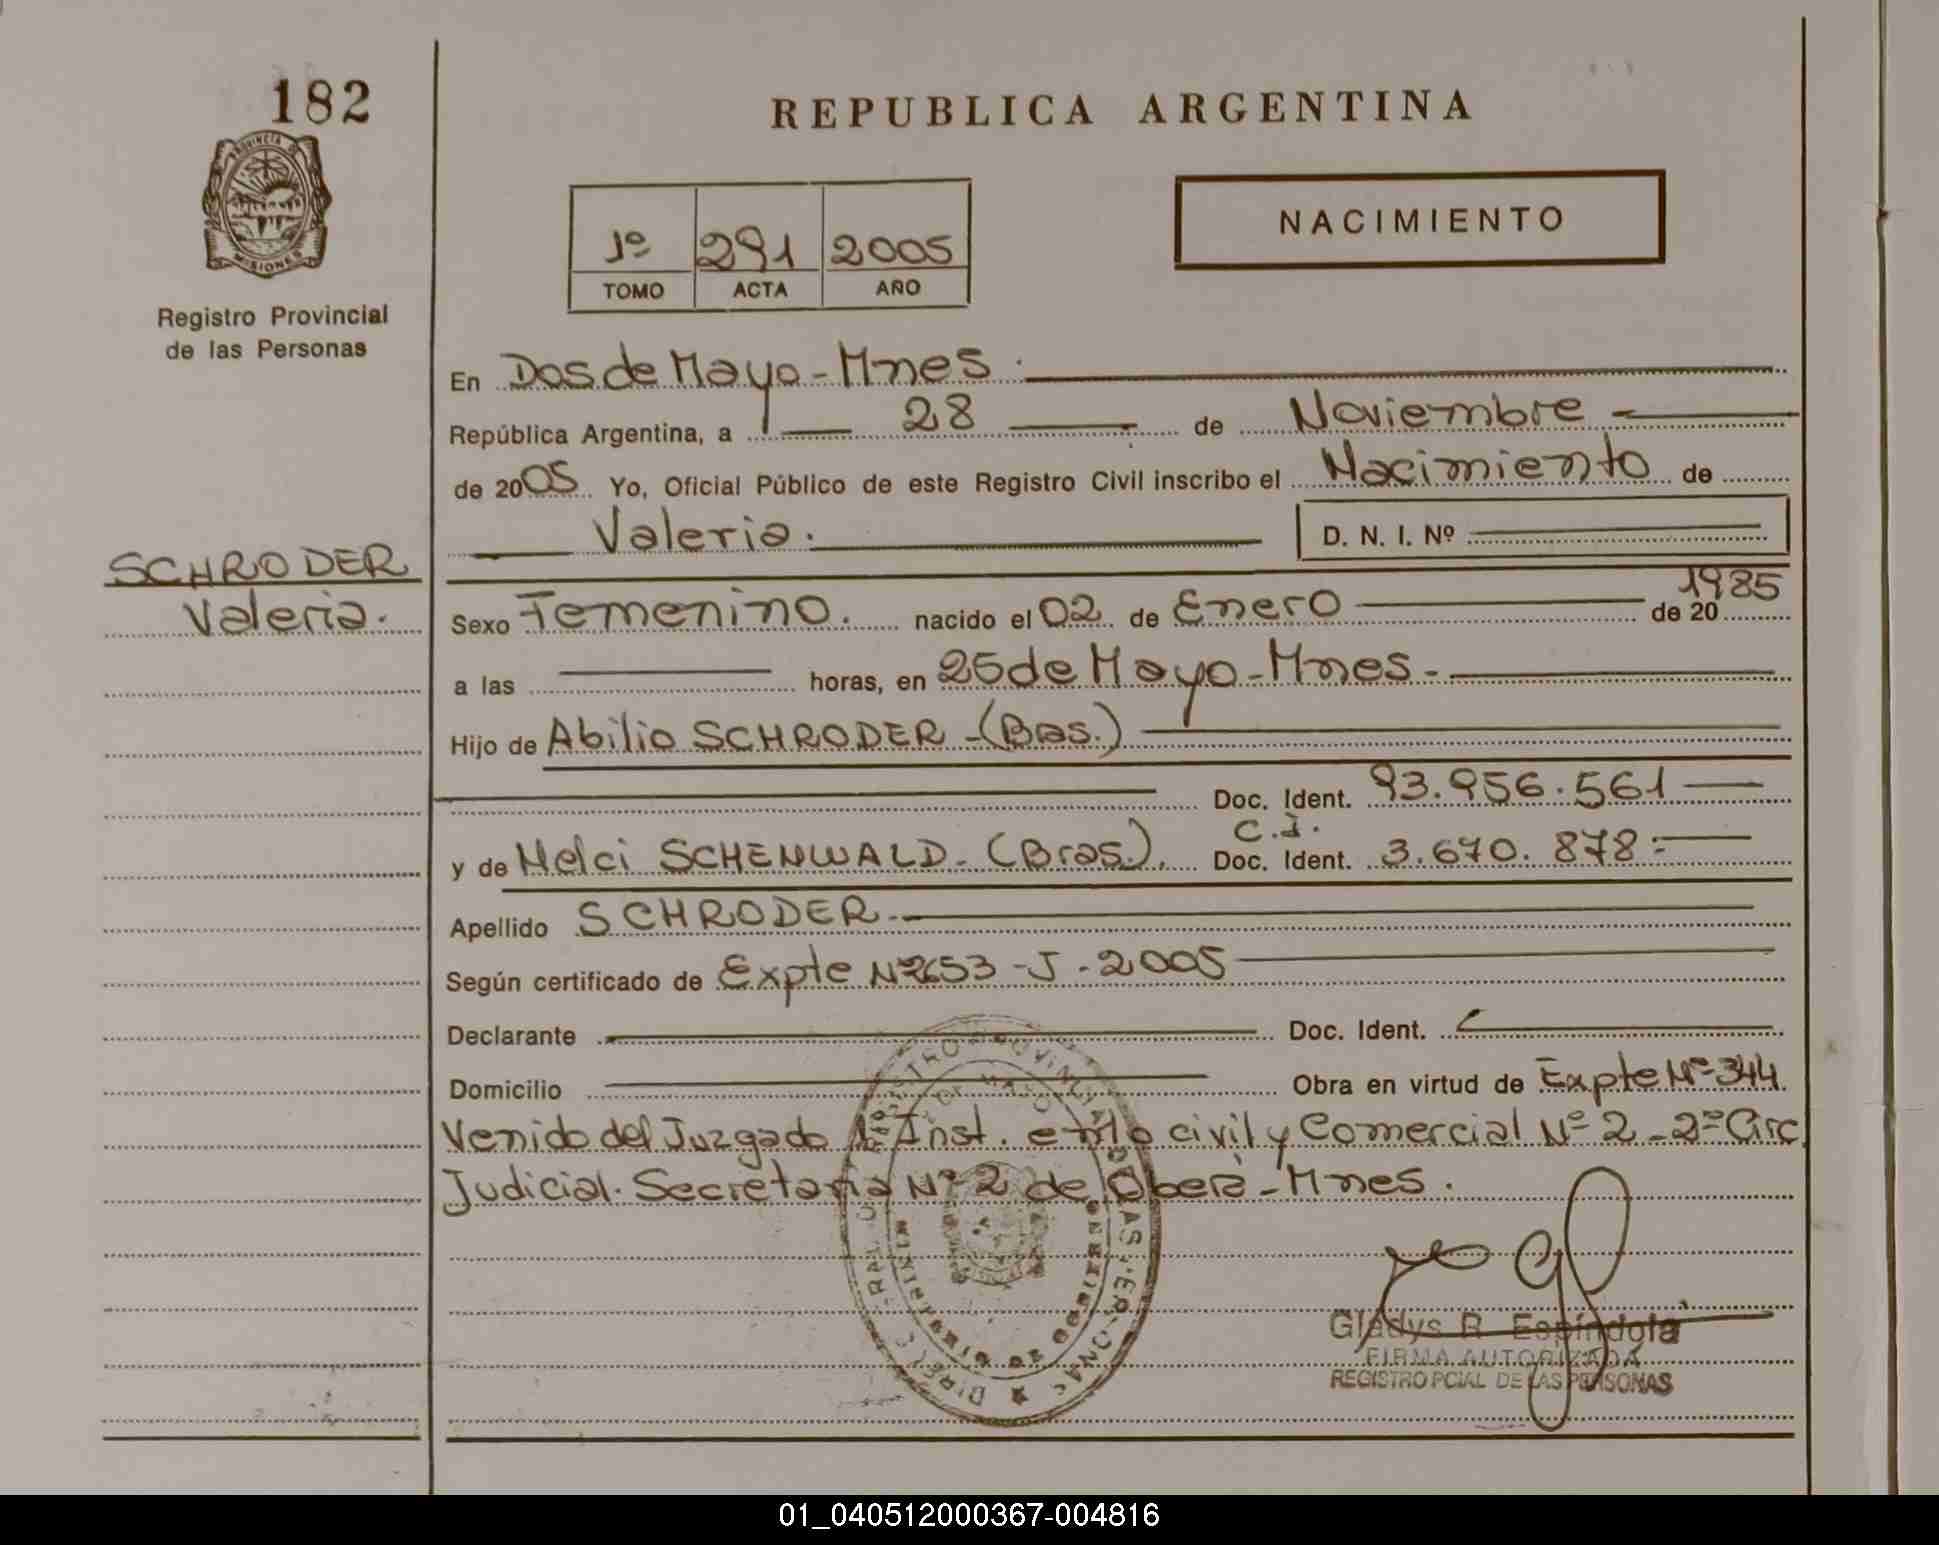 182
PROVINCIA DE
MISIONES
Registro Provincial
de las Personas
SCHRODER
Valeria.
REPUBLICA ARGENTINA
1º 291 2005
TOMO ACTA AÑO
NACIMIENTO
En Dos de Mayo - Mnes.
República Argentina, a 28 de Noviembre
de 2005 Yo, Oficial Público de este Registro Civil inscribo el Nacimiento de
Valeria. D. N. I. Nº
Sexo Femenino. nacido el 02 de Enero de 20 1985
a las horas, en 25 de Mayo - Mnes -
Hijo de Abilio SCHRODER - (Bras.)
Doc. Ident. 93.956.561
C.I.
y de Nelci SCHENWALD - (Bras.). Doc. Ident. 3.670.878
Apellido SCHRODER -
Según certificado de Expte Nº 2653 - J - 2005
Declarante Doc. Ident.
Domicilio Obra en virtud de Expte Nº 344
Venido del Juzgado 1ª Inst. en lo civil y Comercial Nº 2 - 2ª Circ.
Judicial. Secretaria Nº 2 de Oberá - Mnes.
Gladys R. Espíndola
FIRMA AUTORIZADA
REGISTRO PCIAL DE LAS PERSONAS
01_040512000367-004816